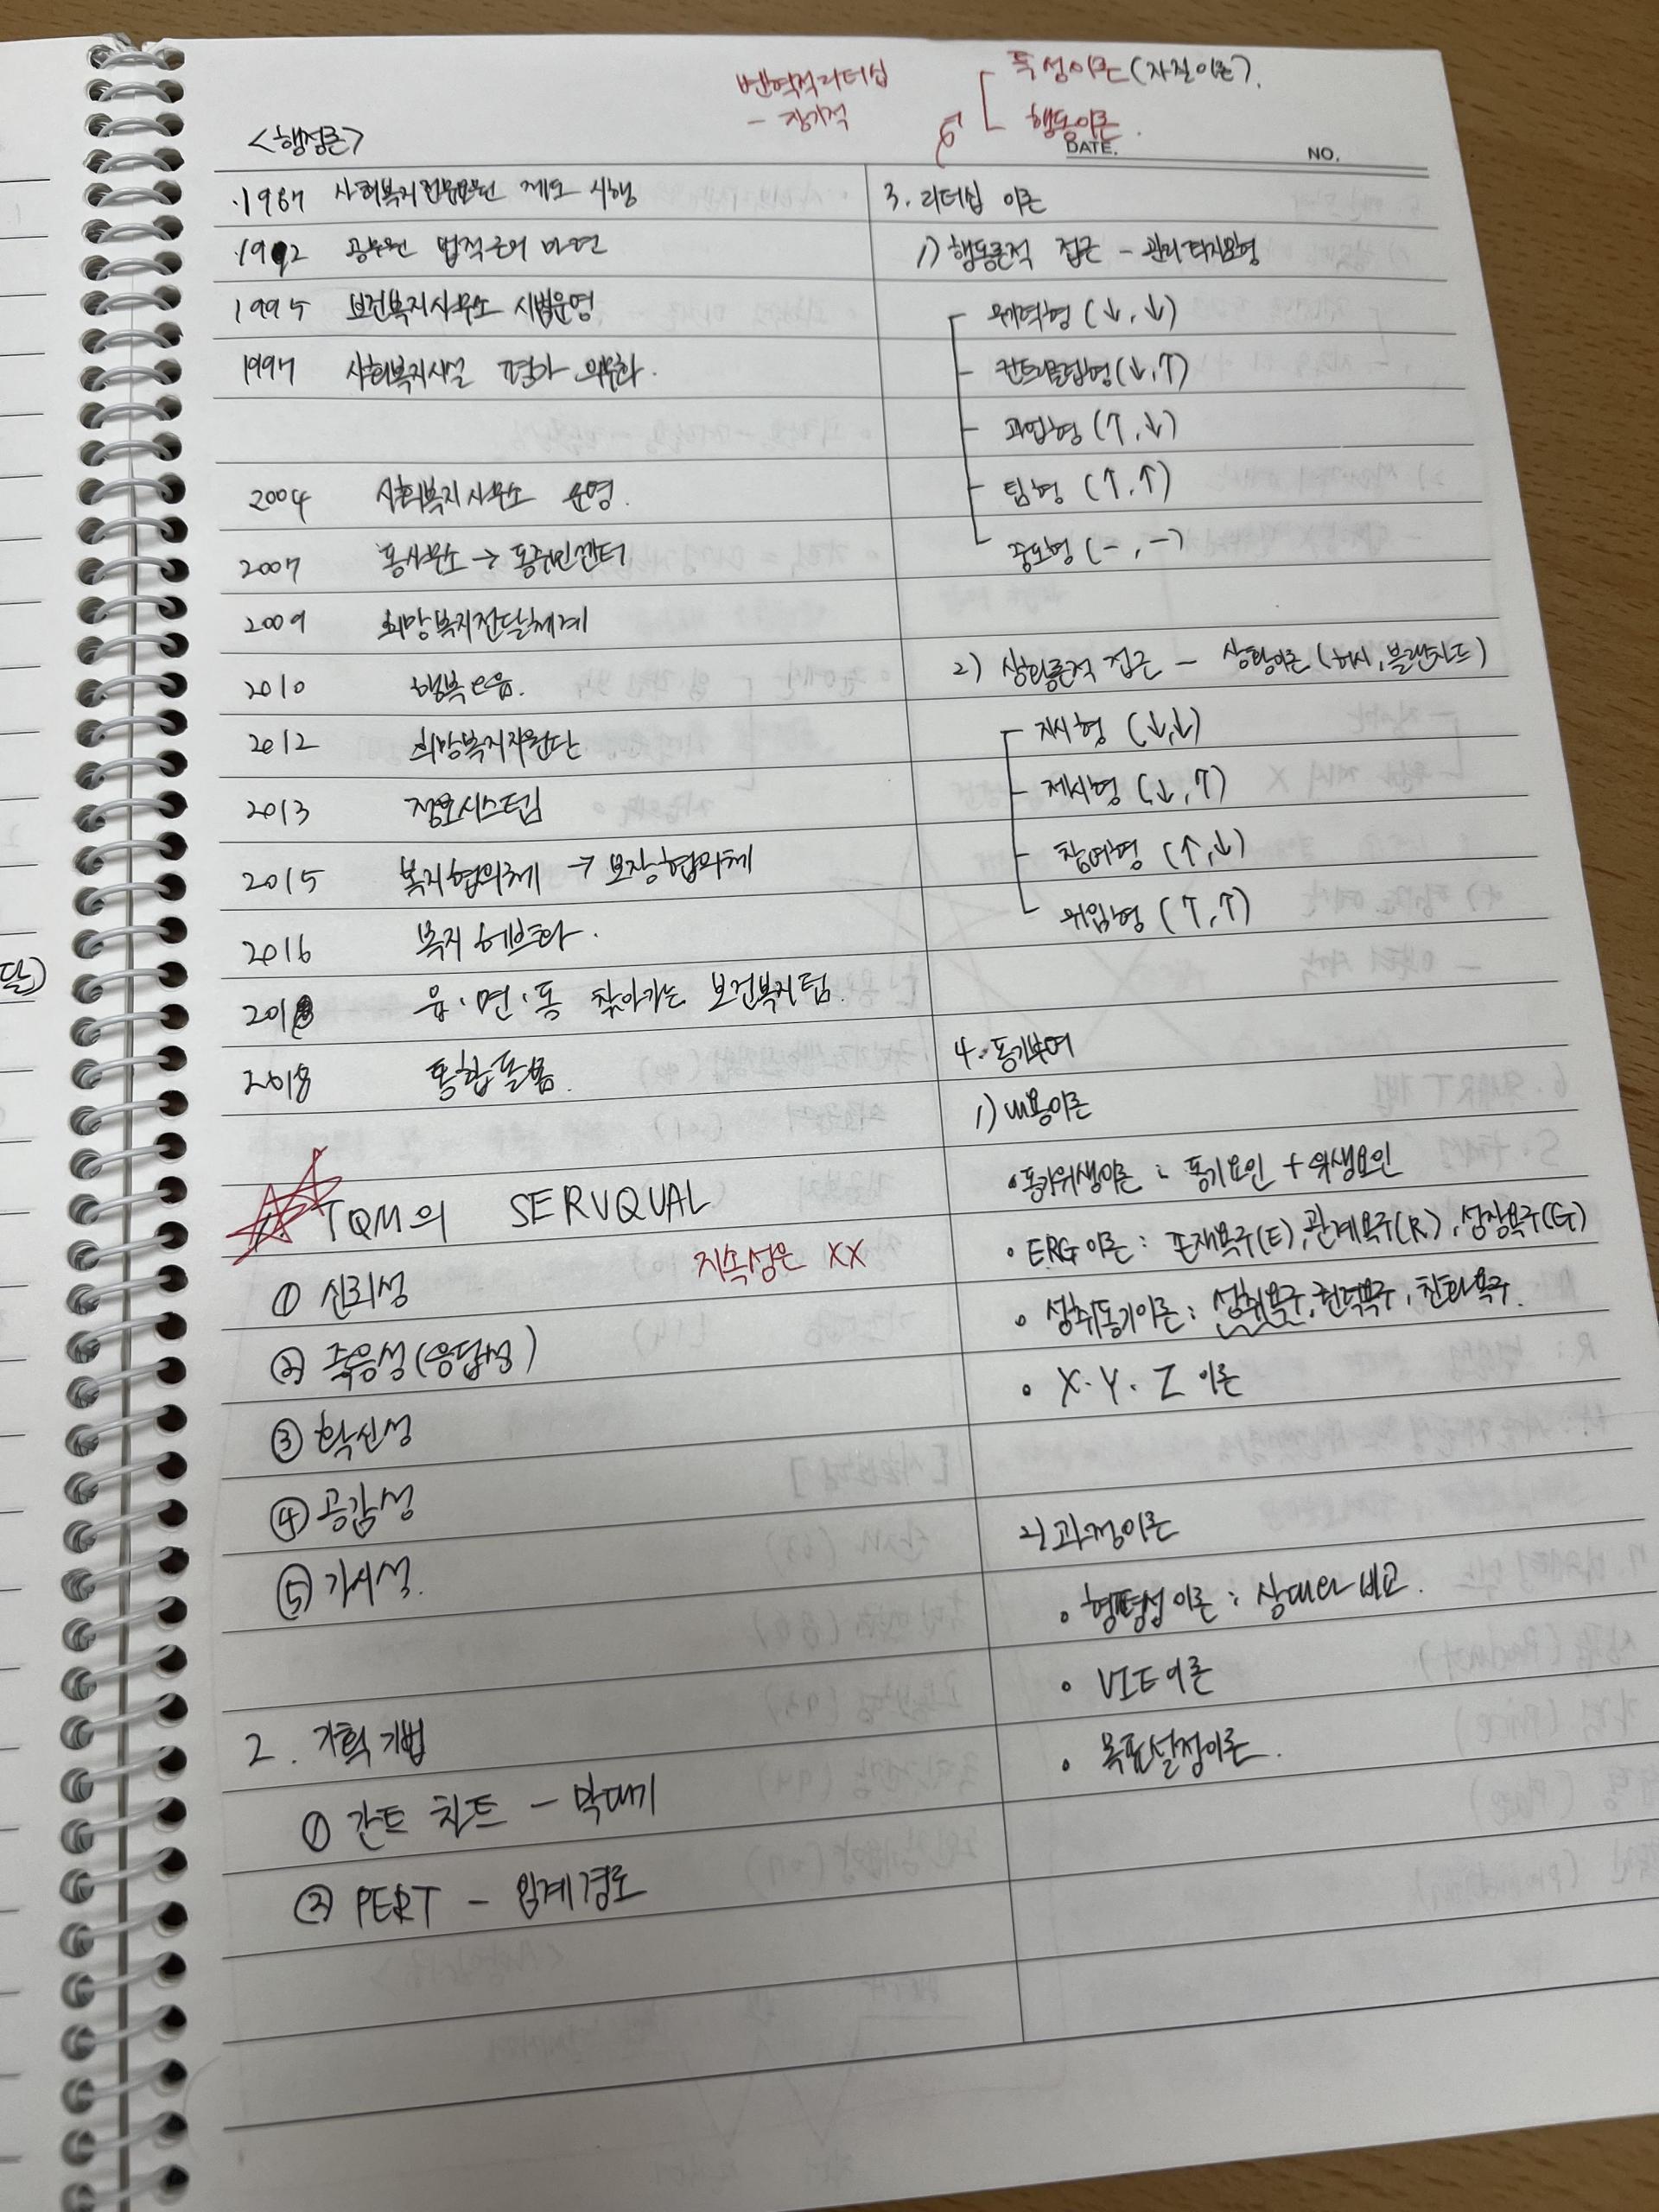 변혁적리더십
- 장기적
특성이론(자질이론).
행동이론.
DATE.
NO.
<행정론>
·1987 사회복지전문요원 제도 시행
·1992 공무원 법적근거 마련
1995 보건복지사무소 시범운영
1997 사회복지시설 평가 의무화.
2004 사회복지사무소 운영.
2007 동사무소 → 동주민센터
2009 희망복지전달체계
2010 행복e음.
2012 희망복지지원단
2013 정보시스템
2015 복지협의체 → 보장협의체
2016 복지허브화.
2018 읍·면·동 찾아가는 보건복지팀.
2018 통합돌봄.
1. TQM의 SERVQUAL
지속성은 XX
① 신뢰성
② 즉응성(응답성)
③ 확신성
④ 공감성
⑤ 가시성.
2. 기획기법
① 간트 차트 - 막대기
② PERT - 임계경로
3. 리더십 이론
1) 행동론적 접근 - 관리격자모형
무력형 (↓,↓)
컨트리클럽형(↓,↑)
과업형 (↑,↓)
팀형 (↑,↑)
중도형 (-,-)
2) 상황론적 접근 - 상황이론 (허시, 블랜차드)
지시형 (↓,↓)
제시형 (↓,↑)
참여형 (↑,↓)
위임형 (↑,↑)
4. 동기부여
1) 내용이론
• 동기위생이론 : 동기요인 + 위생요인
• ERG 이론 : 존재욕구(E), 관계욕구(R), 성장욕구(G)
• 성취동기이론 : 성취욕구, 권력욕구, 친화욕구.
• X·Y·Z 이론
2) 과정이론
• 형평성 이론 : 상대와 비교.
• VIE이론
• 목표설정이론.
달)